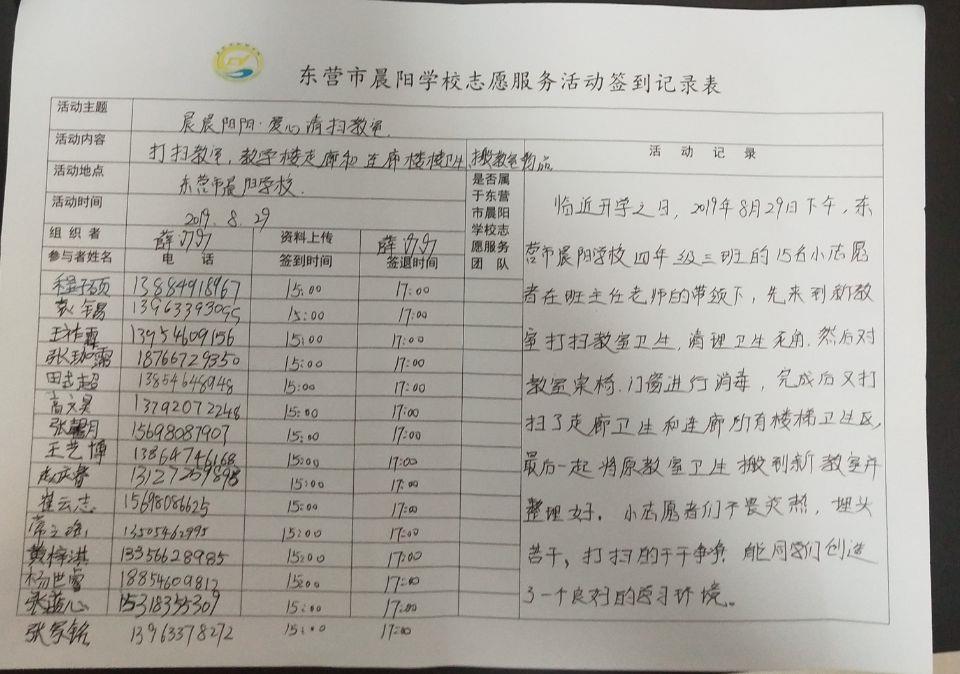 东营市晨阳学校志愿服务活动签到记录表
活动主题 晨晨阳阳·爱心清扫教室
活动内容 打扫教室，教学楼走廊和连廊楼梯卫生，搬教室物品
活动记录
活动地点 东营市晨阳学校
活动时间 2019.8.29
是否属
于东营
市晨阳
学校志
愿服务
团队
组织者 薛 资料上传 薛
参与者姓名 电话 签到时间 签退时间
13884918967 15:00 17:00
13963393095 15:00 17:00
王祚霖 13954609156 15:00 17:00
张 18766729350 15:00 17:00
田 超 13854648948 15:00 17:00
高文昊 13792072248 15:00 17:00
张馨月 15698087907 15:00 17:00
王艺博 13864746168 15:00 17:00
15:00 17:00
崔云志 15698086625 15:00 17:00
13505462995 15:00 17:00
黄梓淇 13356628985 15:00 17:00
杨世 18854609812 15:00 17:00
张 心 15318355309 15:00 17:00
张家铭 13963378272 15:00 17:00
临近开学之日，2019年8月29日下午，东
营市晨阳学校四年级三班的15名小志愿
者在班主任老师的带领下，先来到新教
室打扫教室卫生，清理卫生死角，然后对
教室桌椅、门窗进行消毒，完成后又打
扫了走廊卫生和连廊所有楼梯卫生区，
最后一起将原教室卫生搬到新教室并
整理好。小志愿者们不畏炎热，埋头
苦干，打扫的干干净净，能同学们创造
了一个良好的学习环境。